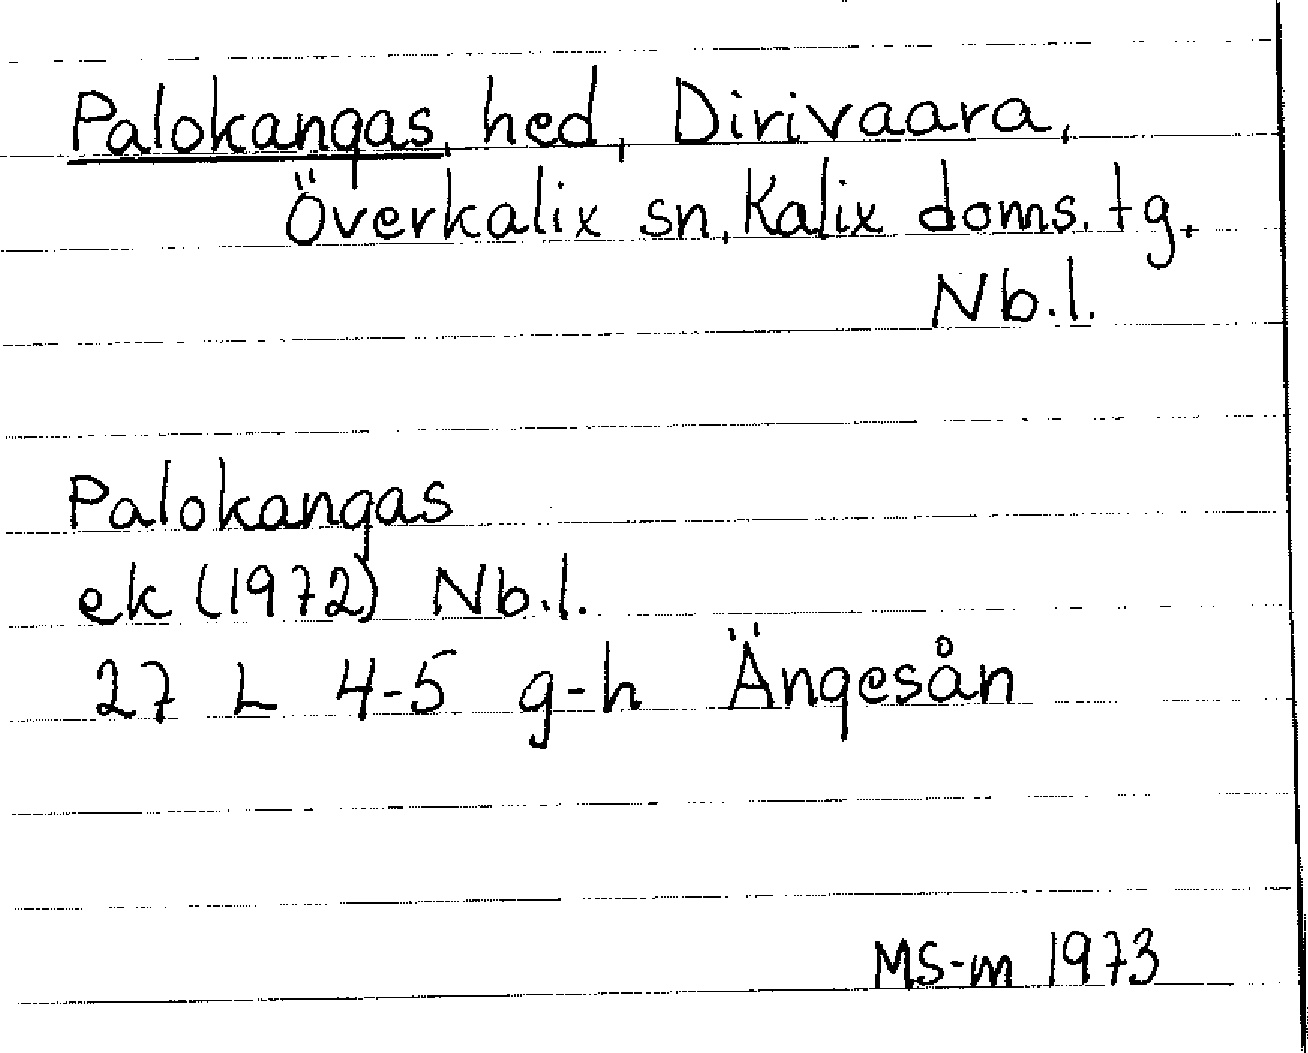 Palokangas, hed, Dirivaara,
Överkalix sn, Kalix doms. tg.
Nb.l.
Palokangas
ek (1972) Nb.l.
27 L 4-5 g-h Ängesån
MS-m 1973